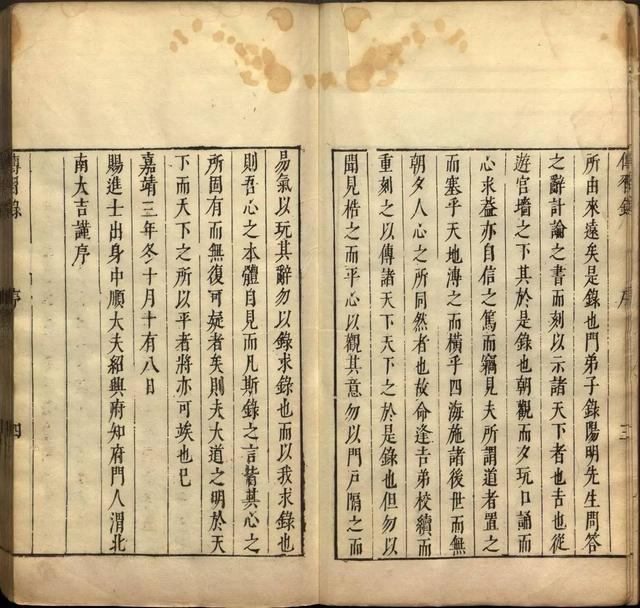 傳習錄
序
三
所由來遠矣是錄也門弟子錄陽明先生問答
之辭討論之書而刻以示諸天下者也吉也從
遊宮墻之下其於是錄也朝觀而夕玩口誦而
心求葢亦自信之篤而竊見夫所謂道者置之
而塞乎天地溥之而橫乎四海施諸後世而無
朝夕人心之所同然者也故命逢吉弟校續而
重刻之以傳諸天下天下之於是錄也但勿以
聞見梏之而平心以觀其意勿以門戶隔之而
易氣以玩其辭勿以錄求錄也而以我求錄也
則吾心之本體自見而凡斯錄之言皆其心之
所固有而無復可疑者矣則夫大道之明於天
下而天下之所以平者將亦可竢也已
嘉靖三年冬十月十有八日
賜進士出身中順大夫紹興府知府門人渭北
南大吉謹序
傳習錄
序
四